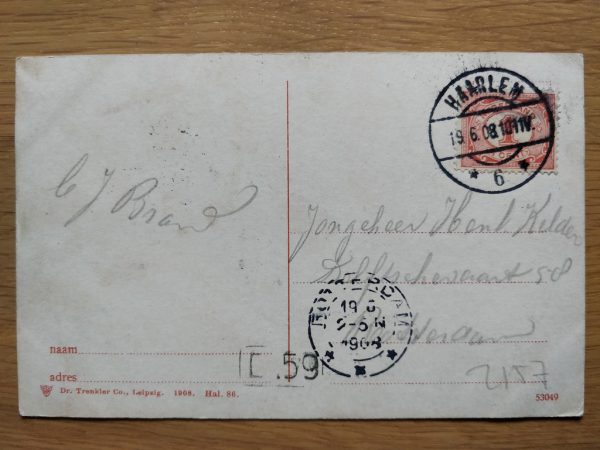 HAARLEM
19.6.08.10-11V.
6
C J Brand
Jongeheer Henk Kelder
Delftschevaart 58
Rotterdam
ROTTERDAM
19 6
1908
naam
adres
59
2157
Dr. Trenkler Co., Leipzig. 1908. Hal. 86.
53049